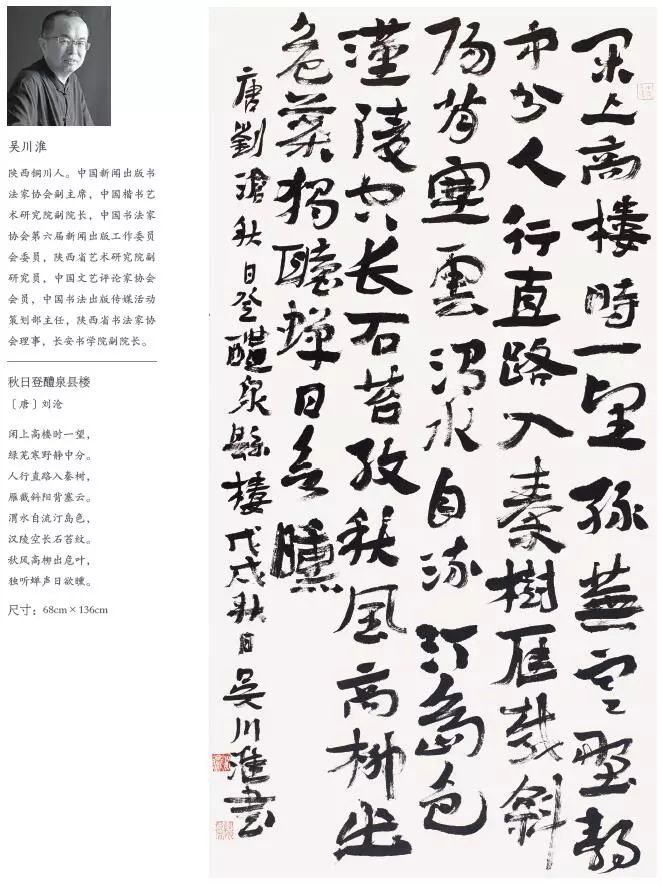 吴川淮
陕西铜川人。中国新闻出版书
法家协会副主席，中国楷书艺
术研究院副院长，中国书法家
协会第六届新闻出版工作委员
会委员，陕西省艺术研究院副
研究员，中国文艺评论家协会
会员，中国书法出版传媒活动
策划部主任，陕西省书法家协
会理事，长安书学院副院长。
秋日登醴泉县楼
［唐］刘沧
闲上高楼时一望，
绿芜寒野静中分。
人行直路入秦树，
雁截斜阳背塞云。
渭水自流汀岛色，
汉陵空长石苔纹。
秋风高柳出危叶，
独听蝉声日欲曛。
尺寸：68cm×136cm
闲上高樓時一望緑蕪寒野静
中分人行直路入秦樹雁截斜
陽背塞雲渭水自流汀島色
漢陵空长石苔紋秋風高柳出
危葉獨聽蝉日欲曛
唐劉滄秋日登醴泉縣樓戊戌秋日吴川淮書